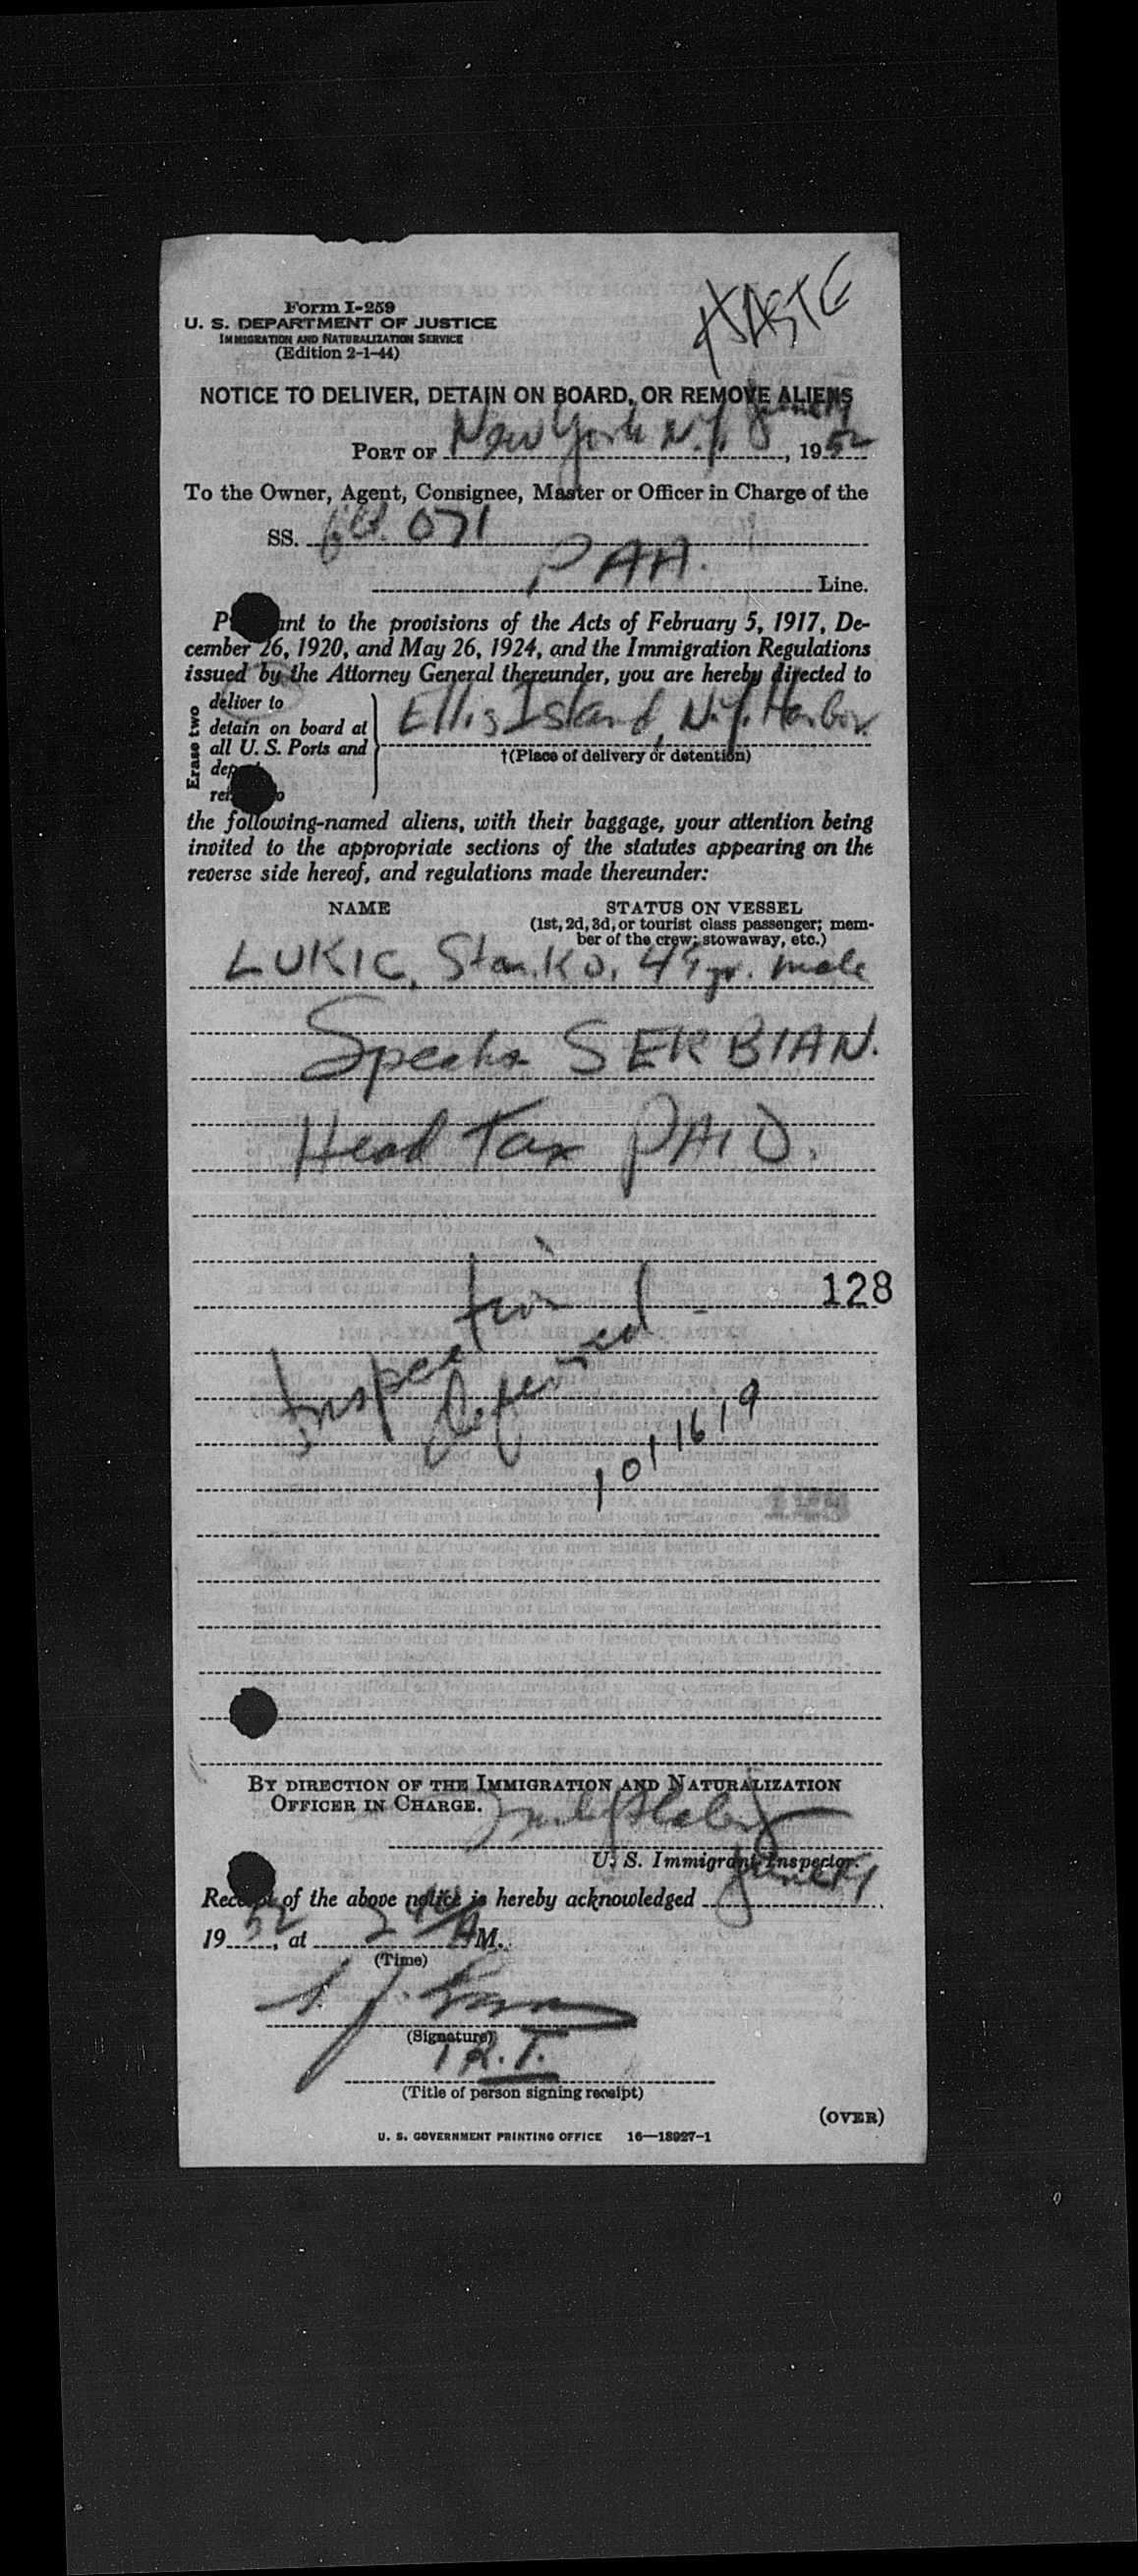 HASTE
Form I-259
U. S. DEPARTMENT OF JUSTICE
IMMIGRATION AND NATURALIZATION SERVICE
(Edition 2-1-44)
NOTICE TO DELIVER, DETAIN ON BOARD, OR REMOVE ALIENS
PORT OF New York N.Y. June , 1952
To the Owner, Agent, Consignee, Master or Officer in Charge of the
SS. 071
PAA. Line.
P ant to the provisions of the Acts of February 5, 1917, De-
cember 26, 1920, and May 26, 1924, and the Immigration Regulations
issued by the Attorney General thereunder, you are hereby directed to
Erase two
deliver to
detain on board at
all U. S. Ports and
Ellis Island, N.Y. Harbor
†(Place of delivery or detention)
the following-named aliens, with their baggage, your attention being
invited to the appropriate sections of the statutes appearing on the
reverse side hereof, and regulations made thereunder:
NAME STATUS ON VESSEL
(1st, 2d, 3d, or tourist class passenger; mem-
ber of the crew; stowaway, etc.)
LUKIC, Stanko, yr. male
Speaks SERBIAN.
Head Tax PAID.
128
Inspection
Deferred -
101 1619
BY DIRECTION OF THE IMMIGRATION AND NATURALIZATION
OFFICER IN CHARGE.
U. S. Immigrant Inspector.
Receipt of the above notice is hereby acknowledged June
1952, at AM.
(Time)
(Signature)
(Title of person signing receipt)
(OVER)
U. S. GOVERNMENT PRINTING OFFICE 16—18927-1